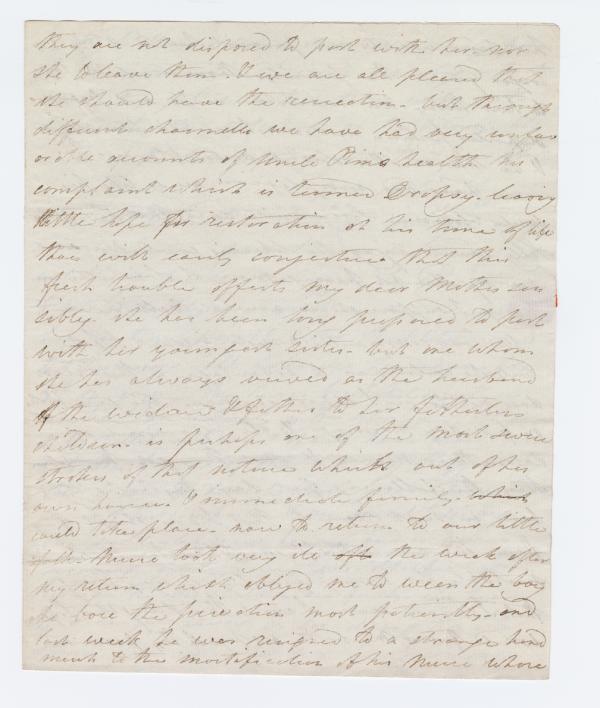 they are not disposed to part with her nor
she to leave them. & we are all pleased that
she should have the recreation - but through
different channells we have had very unfav
orable accounts of Uncle Pims health his
complaint which is termed Dropsy - leaving
little hope for restoration at his time of life
thou wilt easily conjecture that this
fresh trouble affects my dear Mother sen
sibly. she has been long prepared to part
with her youngest sister - but one whom
she has always viewed as the husband
of the widow & Father to her fatherless
children - is perhaps one of the most severe
strokes of that nature which out of her
own house & immediate family which
could take place - now to return to our little
folk - Nurse took very ill the week after
my return which obliged me to wean the boy
he bore the privation most patiently - and
last week he was resigned to a strange hand
much to the mortification of his Nurse whose